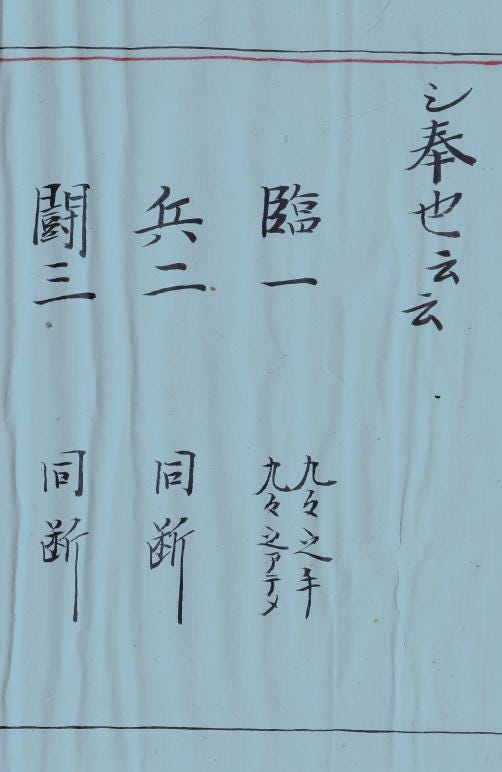 シ奉也云云
臨一
九々之手
九々之アテメ
兵二
同断
闘三
同断